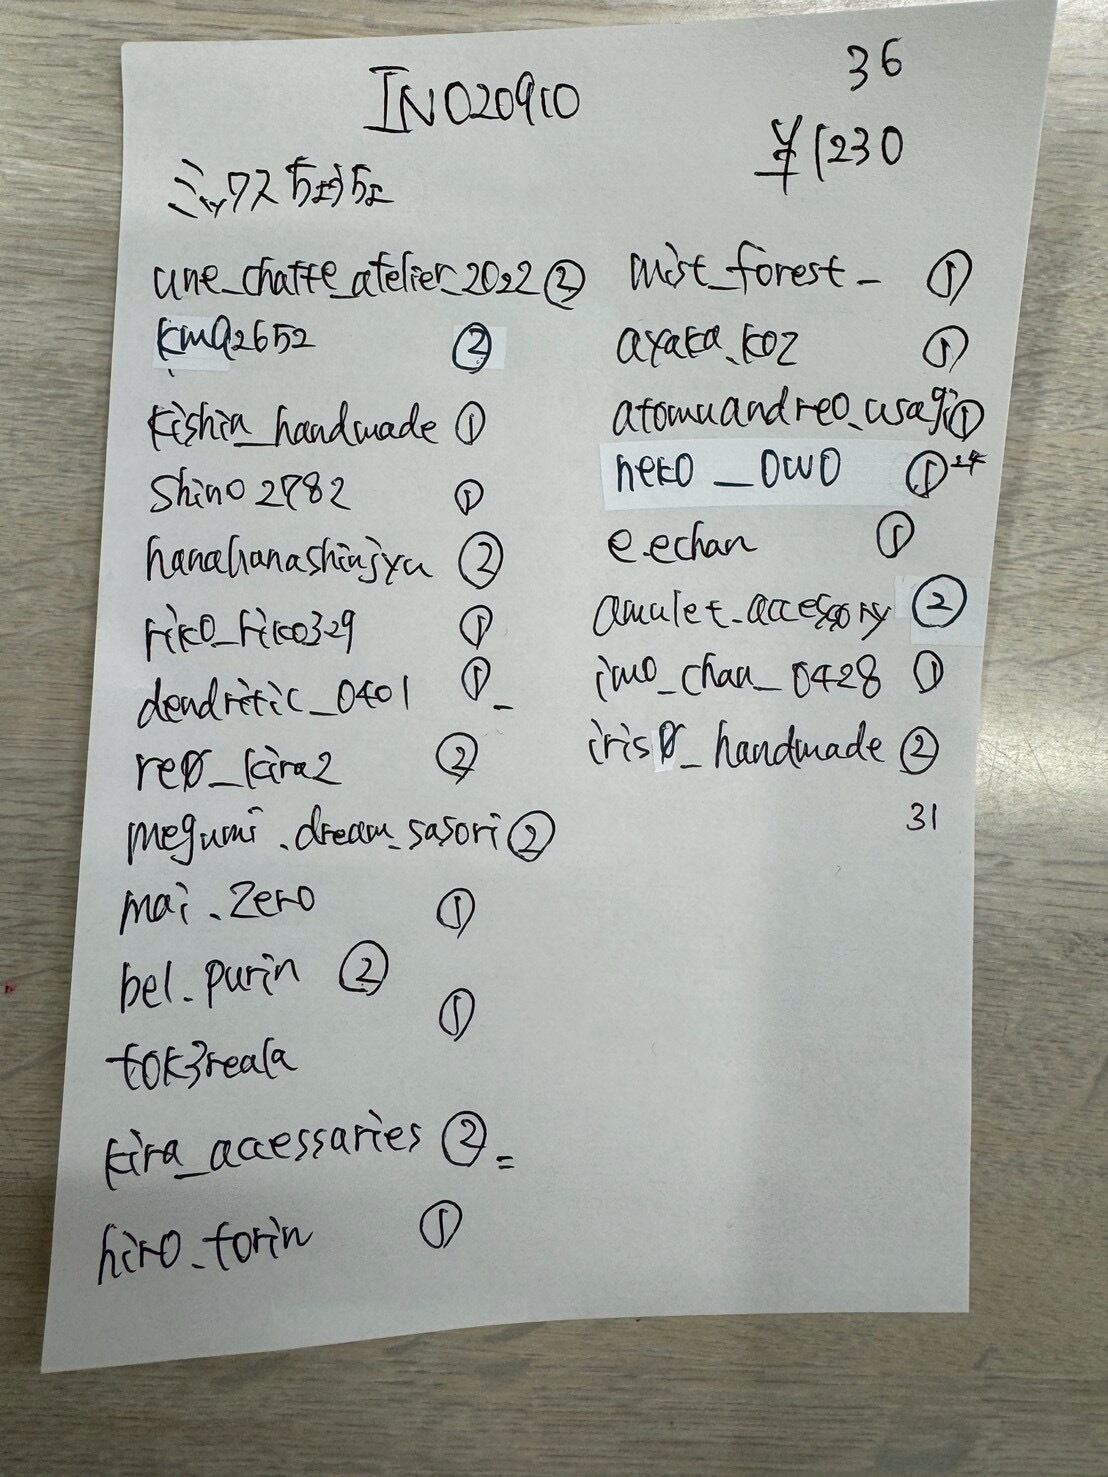 INO20910
36
¥1230
ミックスちょうちょ
une_chatte_atelier_2022 ②
kma2652 ②
kishin_handmade ①
Shino2782 ①
hanahanashinjyu ②
riko_riko329 ①
dendritic_0401 ①
re0_kira2 ②
megumi.dream_sasori ②
mai.zero ①
bel.purin ②
tok3reala ①
kira_accessaries ②
hiro.torin ①
mist_forest_ ①
ayaka.koz ①
atomuandreo_usagi ①
neko__owo ①
e.echan ①
amulet.accessory ②
imo_chan_0428 ①
iris0_handmade ②
31